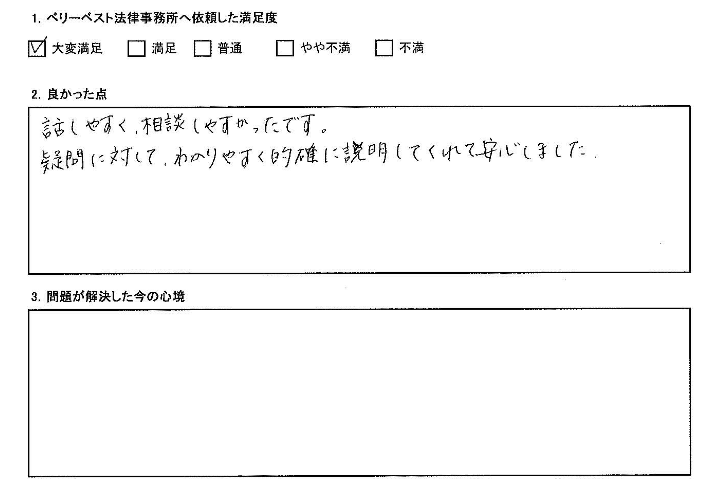 1. ベリーベスト法律事務所へ依頼した満足度
☑ 大変満足 ☐ 満足 ☐ 普通 ☐ やや不満 ☐ 不満
2. 良かった点
話しやすく、相談しやすかったです。
疑問に対して、わかりやすく的確に説明してくれて安心しました。
3. 問題が解決した今の心境